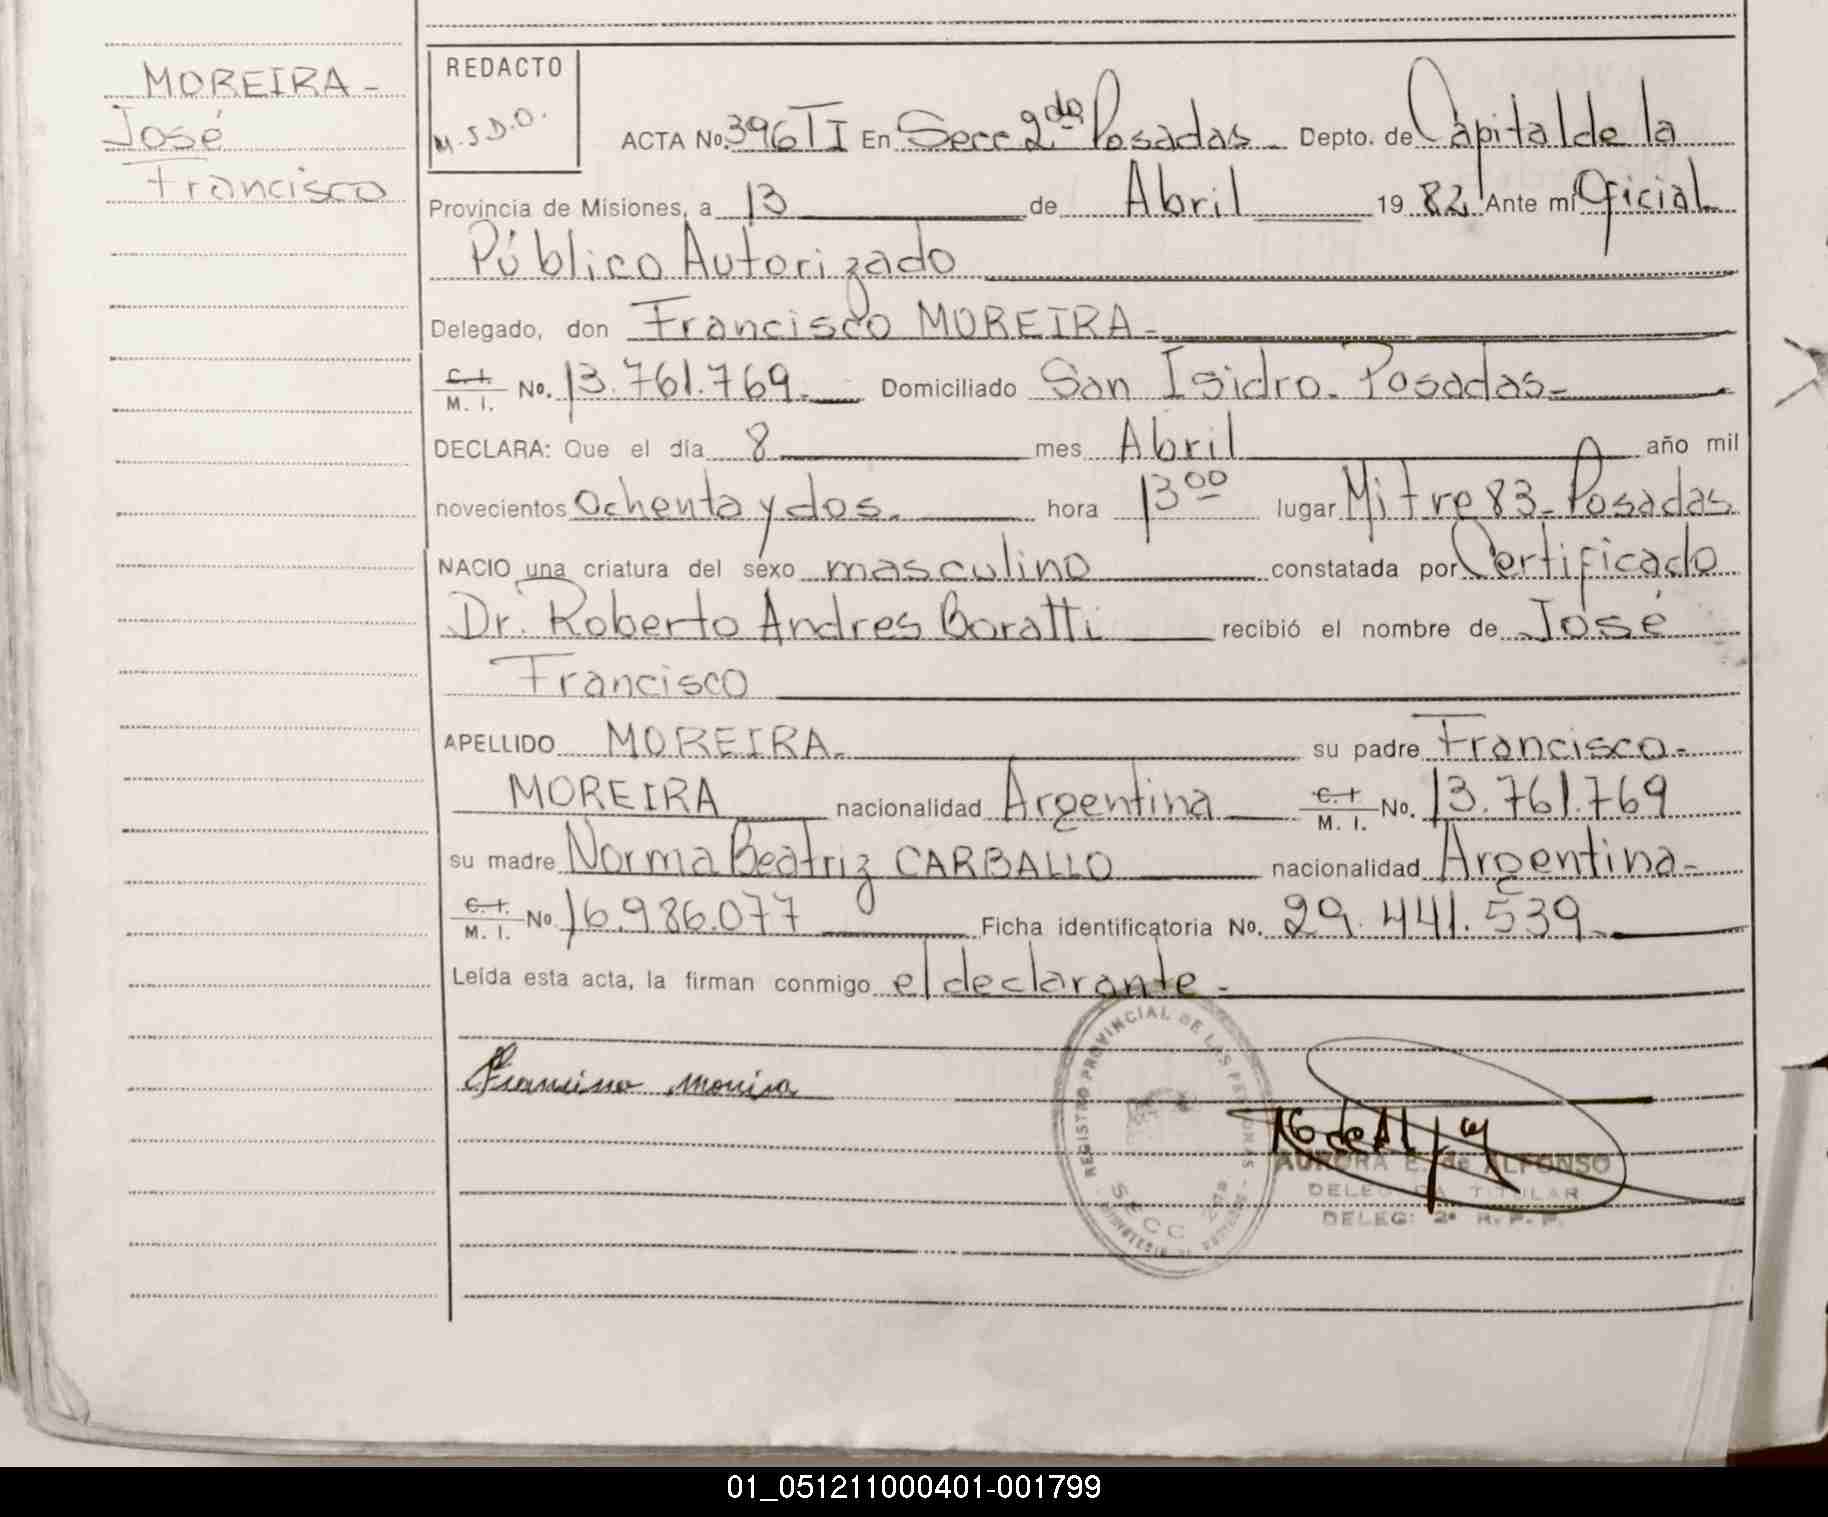 MOREIRA-
José
Francisco
REDACTO
M.S.D.O.
ACTA No. 396 TI En Secc 2da Posadas - Depto. de Capital de la
Provincia de Misiones, a 13 de Abril 1982 Ante mí Oficial
Público Autorizado
Delegado, don Francisco MOREIRA-
C.I. M. I. No. 13.761.769.- Domiciliado San Isidro. Posadas-
DECLARA: Que el día 8 mes Abril año mil
novecientos ochenta y dos. hora 13 00 lugar Mitre 83- Posadas
NACIO una criatura del sexo masculino constatada por Certificado
Dr. Roberto Andres Boratti recibió el nombre de José
Francisco
APELLIDO MOREIRA- su padre Francisco-
MOREIRA nacionalidad Argentina C.I. M. I. No. 13.761.769
su madre Norma Beatriz CARBALLO nacionalidad Argentina-
C.I. M. I. No. 16.986.077 Ficha identificatoria No. 29.441.539-
Leída esta acta, la firman conmigo el declarante-
REGISTRO PROVINCIAL DE LAS PERSONAS
SECC
Francisco Moreira
AURORA E. de ALFONSO
DELEGADA TITULAR
DELEG: 2a R. P. P.
01_051211000401-001799